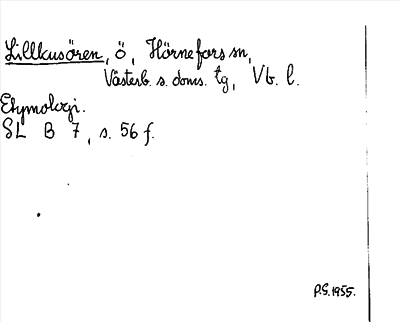 Lillkusören, ö, Hörnefors sn,
Västerb. s. doms. tg, Vb. l.
Etymologi.
SL B 7, s. 56 f.
P.S. 1955.